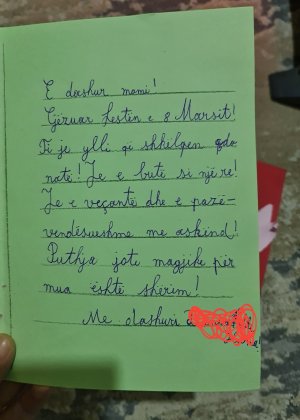 E dashur mami!
Gëzuar festën e 8 Marsit!
Ti je ylli që shkëlqen çdo
natë! Je e butë si një re!
Je e veçantë dhe e pazë-
vendësueshme me askënd!
Puthja jote magjike për
mua është shërim!
Me dashuri